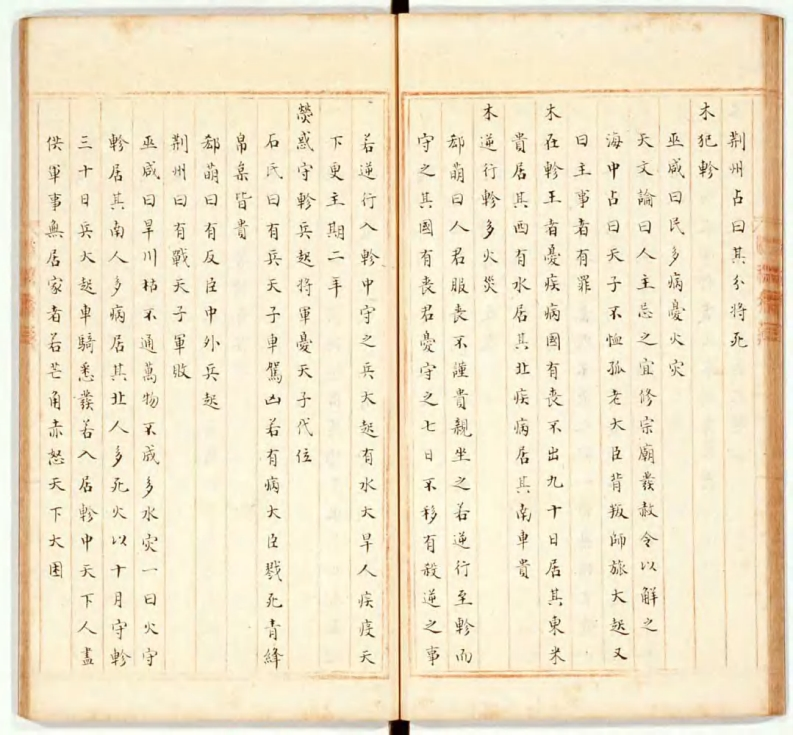 荆州占曰其分將死
木犯軫
巫咸曰民多病憂火灾
天文論曰人主忌之宜修宗廟發赦令以解之
海中占曰天子不恤孤老大臣背叛師旅大起又
曰主事者有罪
木在軫王者憂疾病國有喪不出九十日居其東米
貴居其西有水居其北疾病居其南車貴
木逆行軫多火災
郗萌曰人君服喪不謹貴親坐之若逆行至軫而
守之其國有喪君憂守之七日不移有殺逆之事
若逆行入軫中守之兵大起有水大旱人疾疫天
下更主期二年
熒惑守軫兵起將軍憂天子代位
石氏曰有兵天子車駕凶若有病大臣戮死青絳
帛枲皆貴
郗萌曰有反臣中外兵起
荆州曰有戰天子軍敗
巫咸曰旱川枯不通萬物不成多水灾一曰火守
軫居其南人多病居其北人多死火以十月守軫
三十日兵大起車騎悉發若入居軫中天下人盡
供軍事無居家者若芒角赤怒天下大困